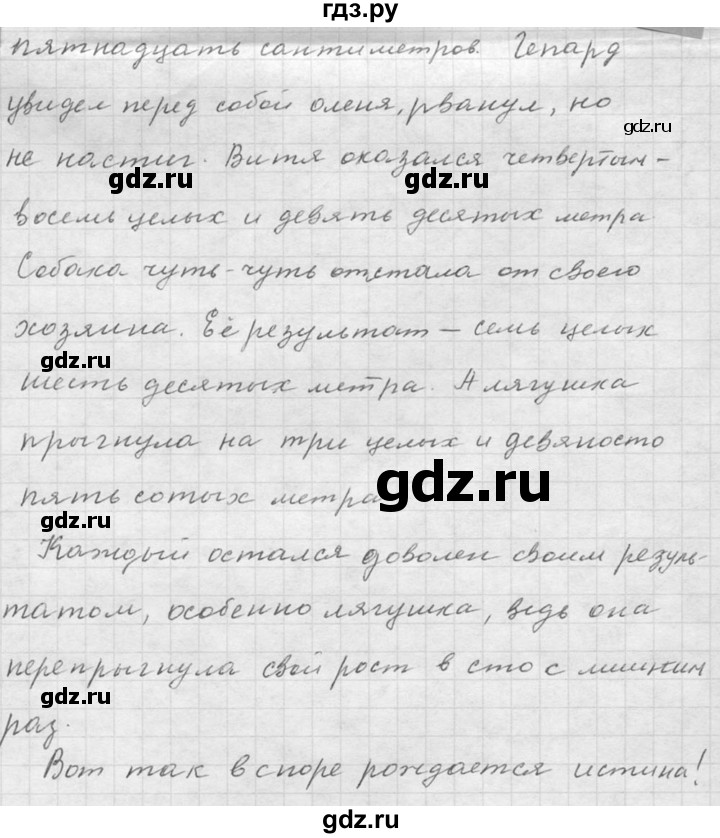 гдз.ру
пятнадцать сантиметров. Гепард
увидел перед собой оленя, рванул, но
gdz.ru
не настиг. Витя оказался четвертым –
gdz.ru
gdz.ru
восемь целых и девять десятых метра
Собака чуть-чуть отстала от своего
хозяина. Её результат – семь целых
gdz.ru
шесть десятых метра. А лягушка
прыгнула на три целых и девяносто
пять сотых метра
gdz.ru
gdz.ru
Каждый остался доволен своим резуль-
татом, особенно лягушка, ведь она
перепрыгнула свой рост в сто с лишним
gdz.ru
раз.
Вот так в споре рождается истина!
gdz.ru